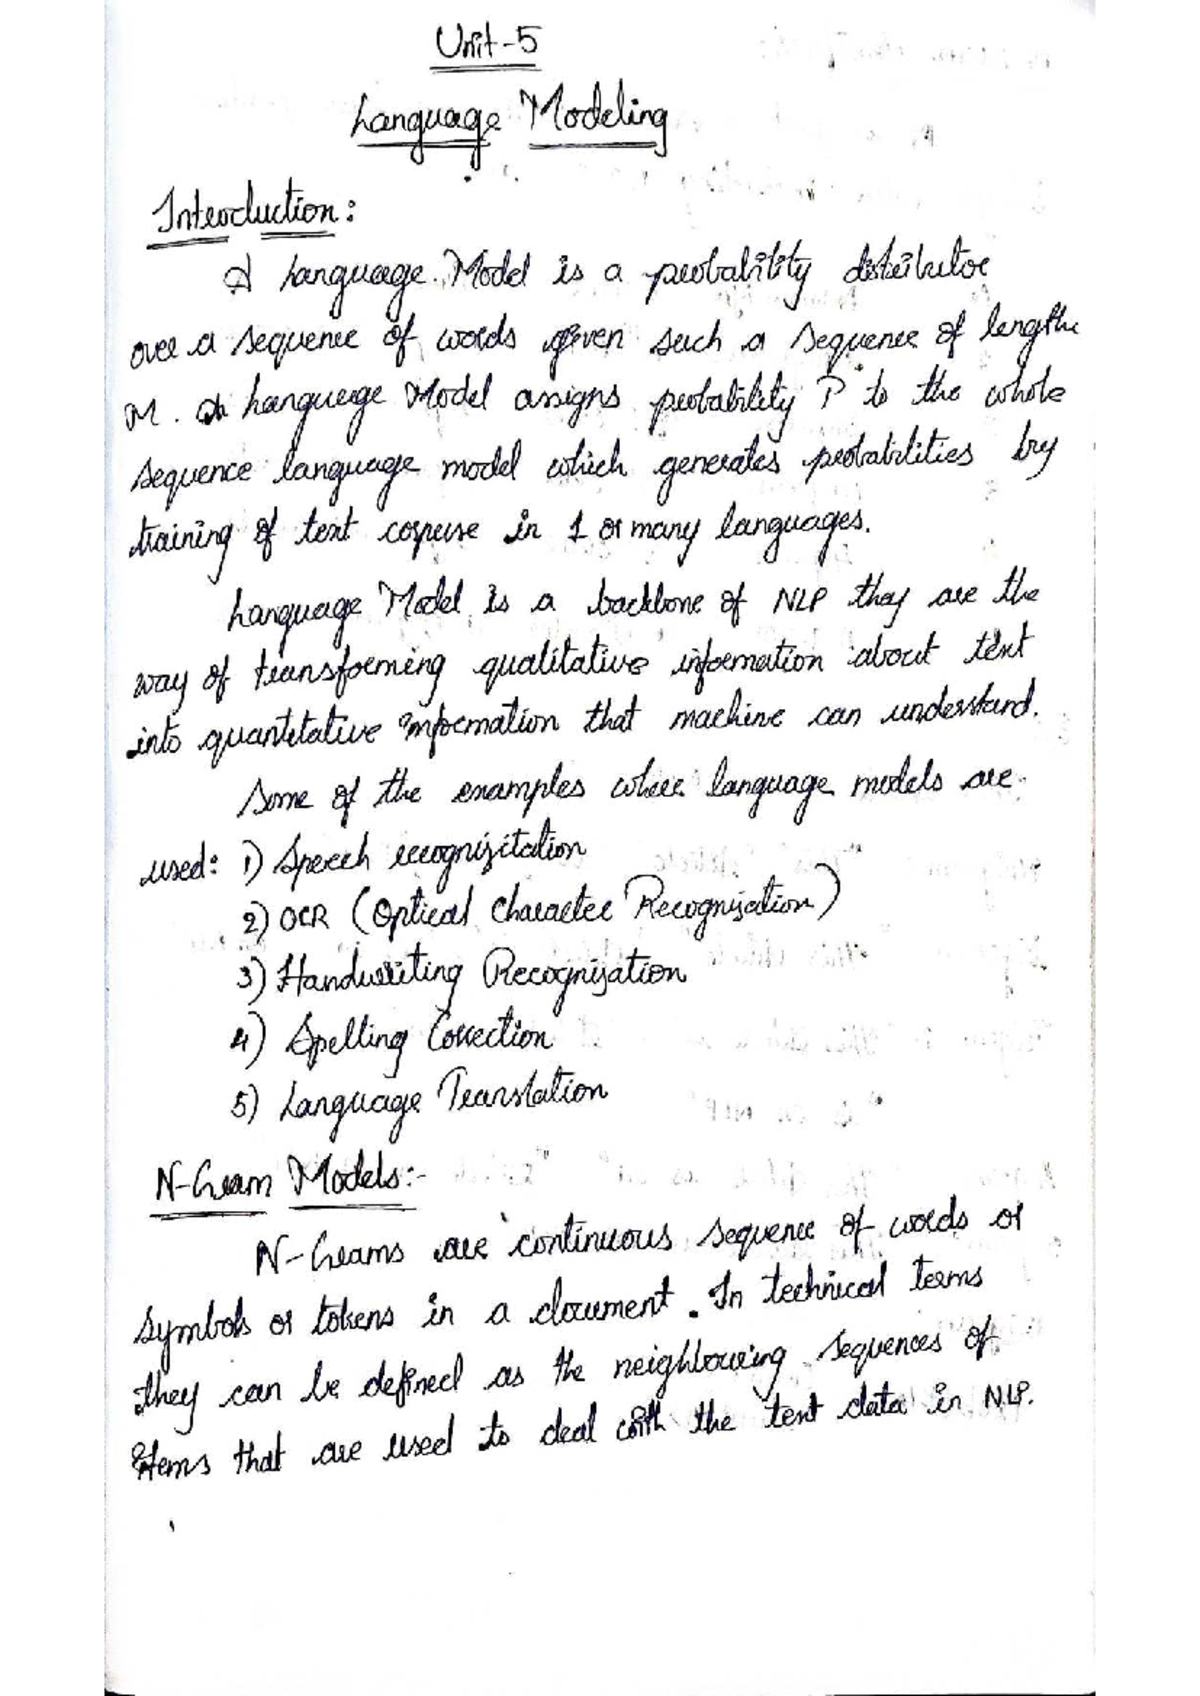 Unit-5
Language Modeling
Introduction:
A Language Model is a probability distributor
over a sequence of words given such a sequence of lengthe
M. A Language Model assigns probability P to the whole
sequence language model which generates probabilities by
training of text corpuse in 1 or many languages.
Language Model is a backbone of NLP they are the
way of transforming qualitative information about text
into quantitative information that machine can understand.
Some of the examples where language models are
used: 1) Speech recognizitation
2) OCR (Optical Character Recognization)
3) Handwriting Recognization
4) Spelling Correction
5) Language Translation
N-Gram Models:-
N-Grams are continuous sequence of words or
symbols or tokens in a document. In technical terms
they can be defined as the neighbouring sequences of
items that are used to deal with the text data in NLP.